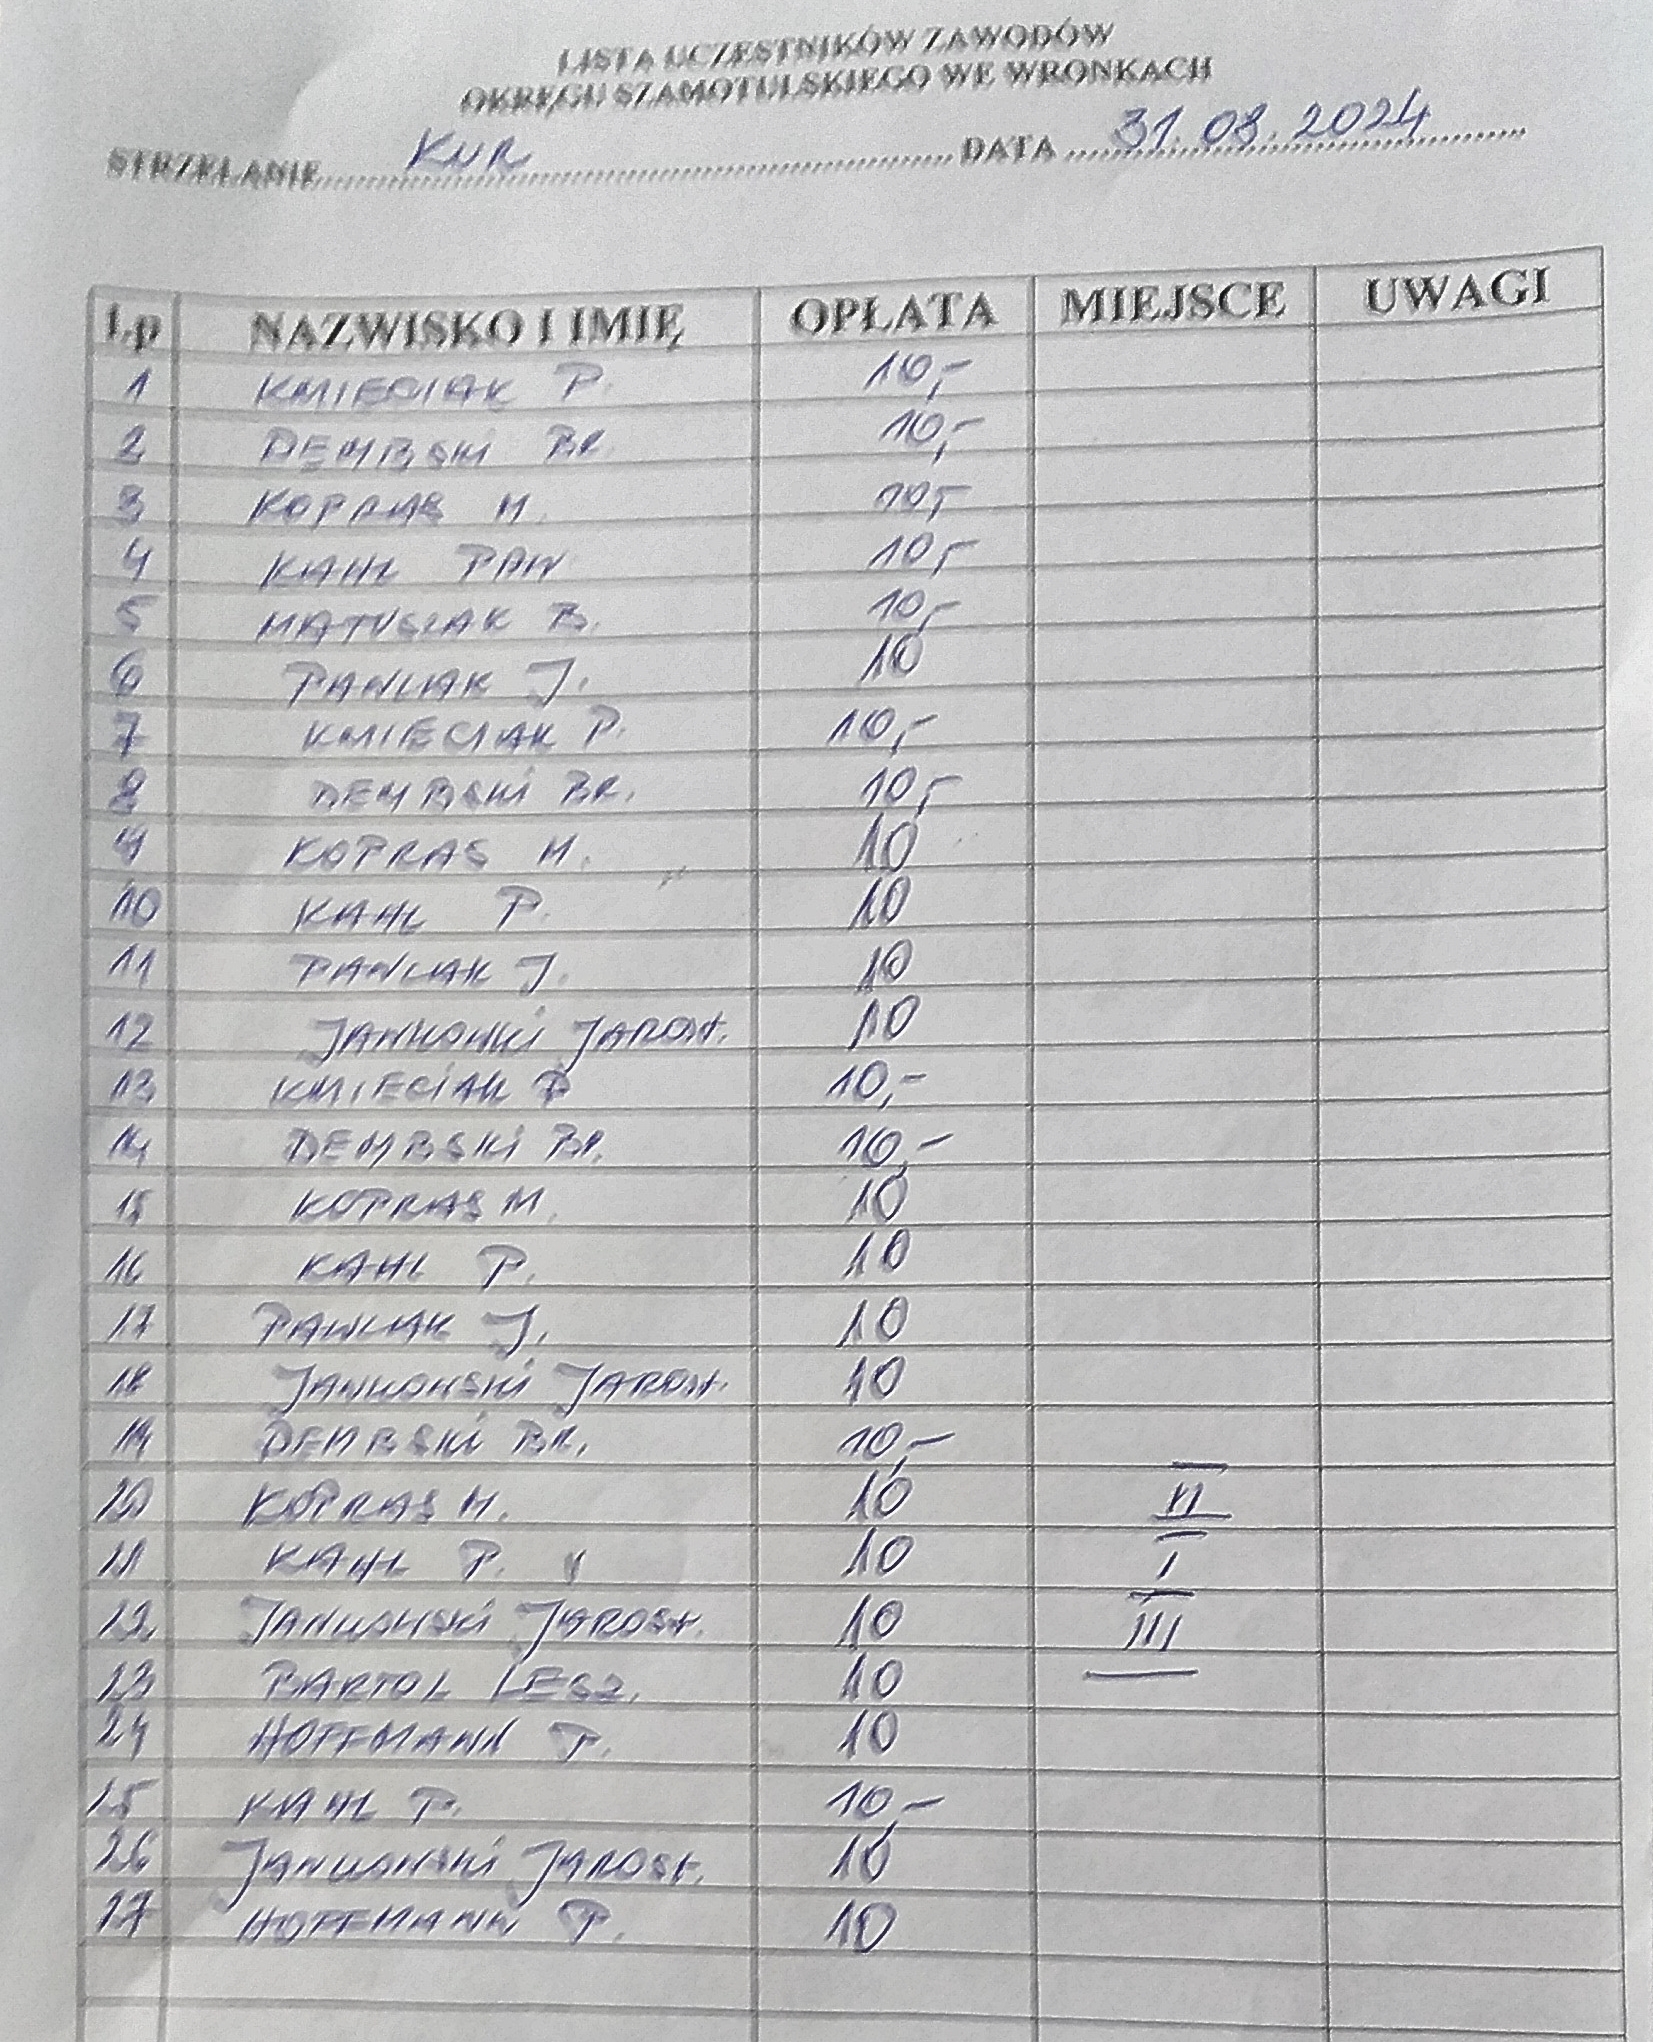 LISTA UCZESTNIKÓW ZAWODÓW
OKRĘGU SZAMOTULSKIEGO WE WRONKACH
STRZELANIE KUR DATA 31.08.2024
Lp NAZWISKO I IMIĘ OPŁATA MIEJSCE UWAGI
1 KMIECIAK P. 10,-
2 DEMBSKi BR. 10,-
3 KOPRAS M. 10,-
4 KAHL PAW 10,-
5 MATUSIAK B. 10,-
6 PAWLAK J. 10
7 KMIECIAK P. 10,-
8 DEMBSKi BR. 10,-
9 KOPRAS M. 10
10 KAHL P. 10
11 PAWLAK J. 10
12 JANKOWKi JAROSŁ. 10
13 KMIECIAK P 10,-
14 DEMBSKi BR. 10,-
15 KOPRAS M. 10
16 KAHL P. 10
17 PAWLAK J. 10
18 JANKOWSKi JAROSŁ. 10
19 DEMBSKi BR. 10,-
20 KOPRAS M. 10 II
21 KAHL P. 10 I
22 JANKOWSKi JAROSŁ. 10 III
23 BARTOL LESZ. 10
24 HOFFMANN P. 10
25 KAHL P. 10,-
26 JANKOWSKi JAROSŁ. 10
27 HOFFMANN P. 10